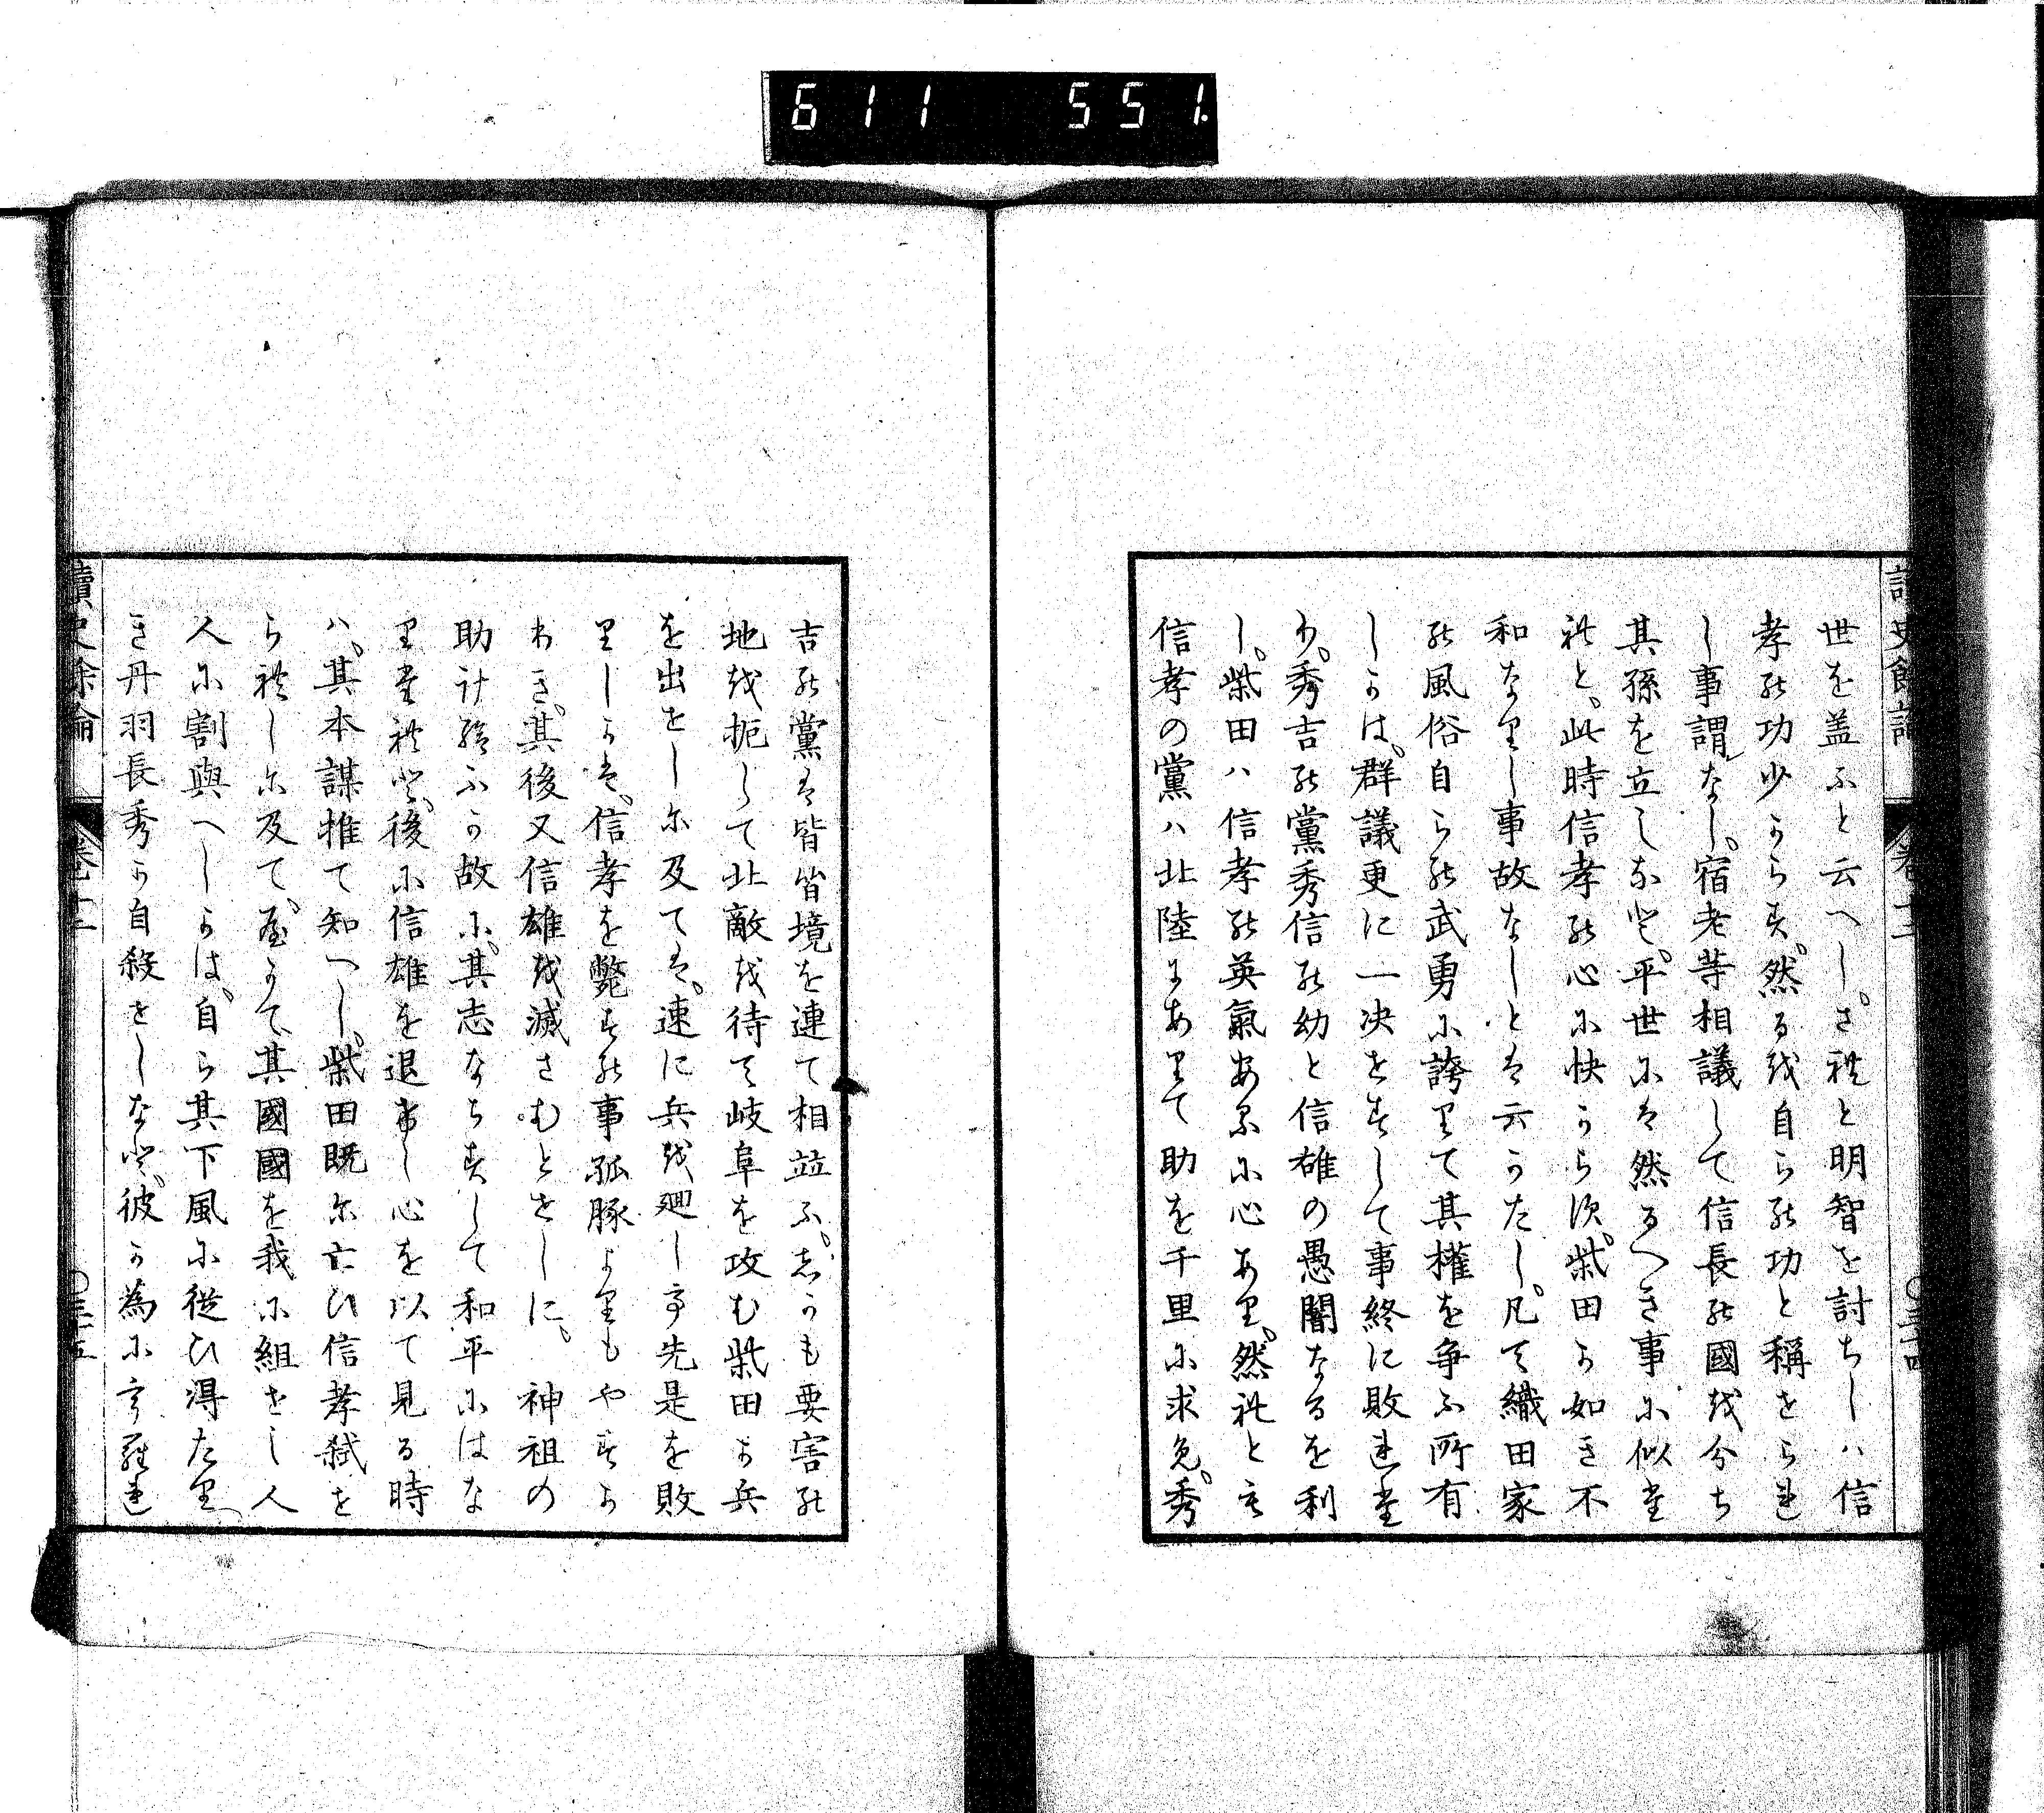 611 551.
讀史餘論 卷十二 〇三十四
世を盖ふと云へし。され と明智を討ちしハ信
孝の功少からす。然るを自らの功と稱せられ
し事謂なし。宿老等相議して信長の國を分ち
其孫を立しなと。平世にハ然るへき事に似た
れと。此時信孝の心に快からす。柴田か如き不
和なりし事故なしとは云かたし。凡て織田家
の風俗自らの武勇に誇りて其權を爭ふ所有
しかは。群議更に一决せすして事終に敗れた
り。秀吉の黨秀信の幼と信雄の愚闇なるを利
し。柴田ハ信孝の英氣あるに心あり。然れとも
信孝の黨ハ北陸にありて助を千里に求む。秀
吉の黨は皆皆境を連て相並ふ。しかも要害の
地を扼して北敵を待て岐阜を攻む柴田か兵
を出せしに及ては。速に兵を廻し亨先是を敗
りしかは。信孝を斃すの事孤豚よりもやすか
りき。其後又信雄を滅さむとせしに。 神祖の
助け給ふか故に。其志ならすして和平にはな
りたれと。後に信雄を退けし心を以て見る時
ハ。其本謀推て知へし。柴田既に亡ひ信孝弑せ
られしに及て。 かて其國國を我に組せし人
人に割與へしかは。自ら其下風に従ひ得たり
き丹羽長秀か自殺せしなと。彼か為に 羅れ
讀史餘論 卷十二 〇三十五